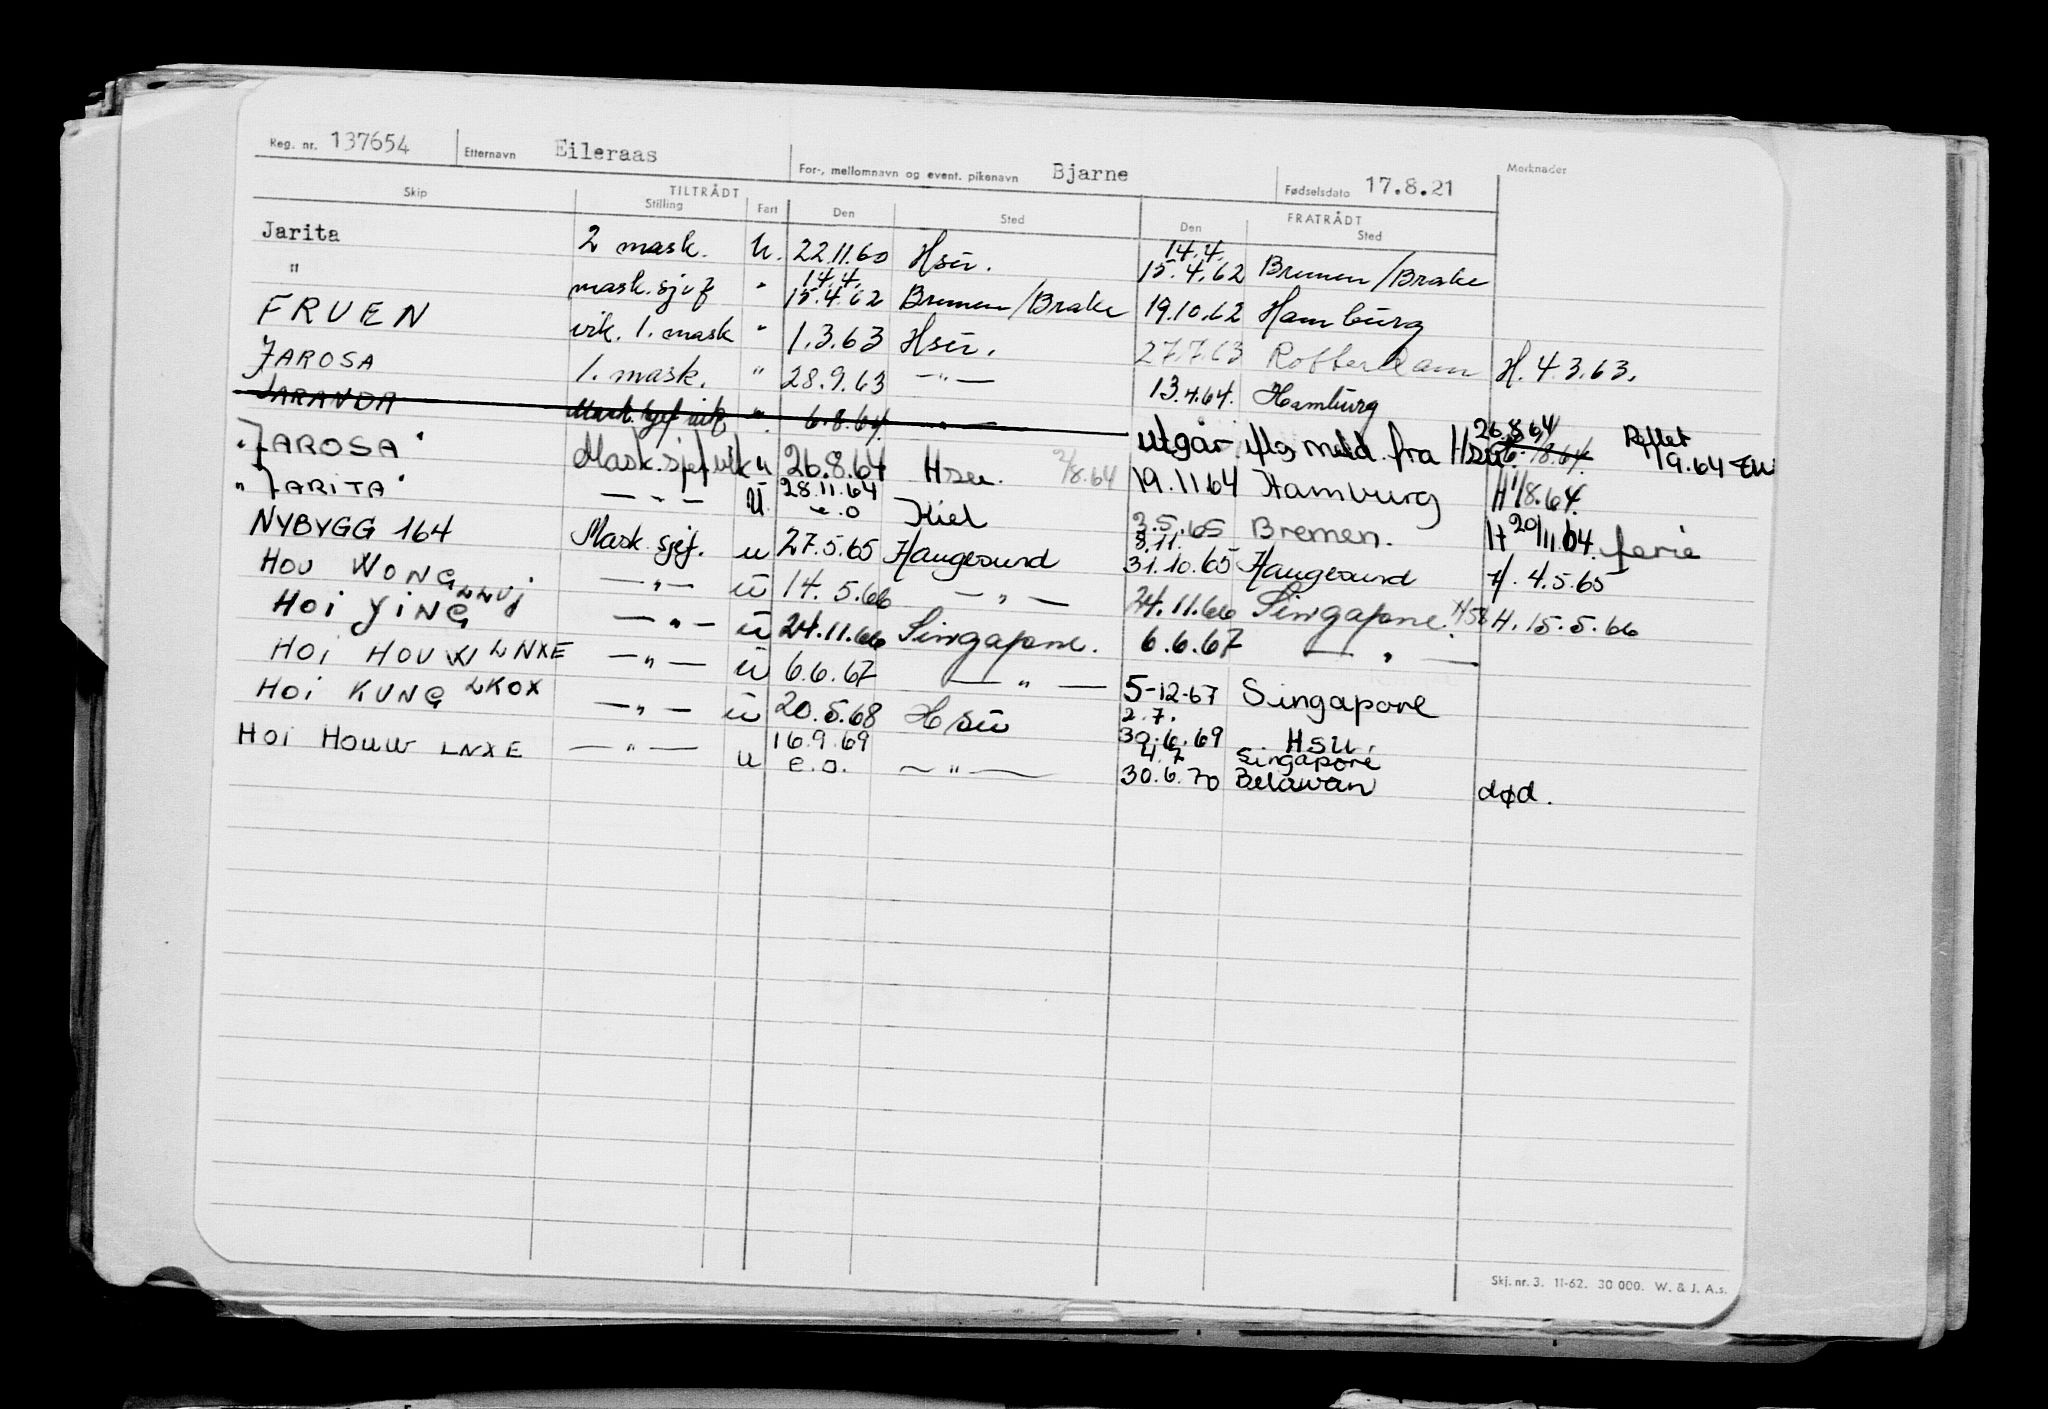 Reg. nr. 137654 Etternavn Eileraas For-, mellomnavn og event. pikenavn Bjarne Fødselsdato 17.8.21 Merknader
TILTRÅDT FRATRÅDT
Skip Stilling Fart Den Sted Den Sted
Jarita 2 mask. u. 22.11.60 Hsu. 14.4. 15.4.62 Bremen/Brake
" mask.sjef " 14.4. 15.4.62 Bremen/Brake 19.10.62 Hamburg
FRUEN vik. 1. mask " 1.3.63 Hsu. 27.7.63 Rotterdam H. 4.3.63.
JAROSA 1. mask. " 28.9.63 —"— 13.4.64. Hamburg
JARANDA Mask. sjef vik " 6.8.64 —"— utgår efter meld. fra Hsu 26.8.64
"JAROSA" Mask.sjef vik u 26.8.64 Hsu. 2/8.64 19.11.64 Hamburg H 1/8.64.
"JARITA" —"— u. 28.11.64 e.o Kiel 3.5.65 Bremen. H 20/11.64. ferie
NYBYGG 164 Mask. sjef. u 27.5.65 Haugesund 8.11. 31.10.65 Haugesund H. 4.5.65
HOU WONG LLUJ —"— u 14.5.66 —"— 24.11.66 Singapore. H. 15.5.66
HOI YING —"— u 24.11.66 Singapore. 6.6.67 —"—
HOI HOUW LNXE —"— u 6.6.67 —"— 5-12-67 Singapore
HOI KUNG LKOX —"— u 20.5.68 Hsu 2.7. 30.6.69 HSU.
HOI HOUW LNXE —"— u 16.9.69 e.o. —"— 4.7 30.6.70 Singapore Belawan død.
Skj. nr. 3. 11-62. 30 000. W. & J. A.s.